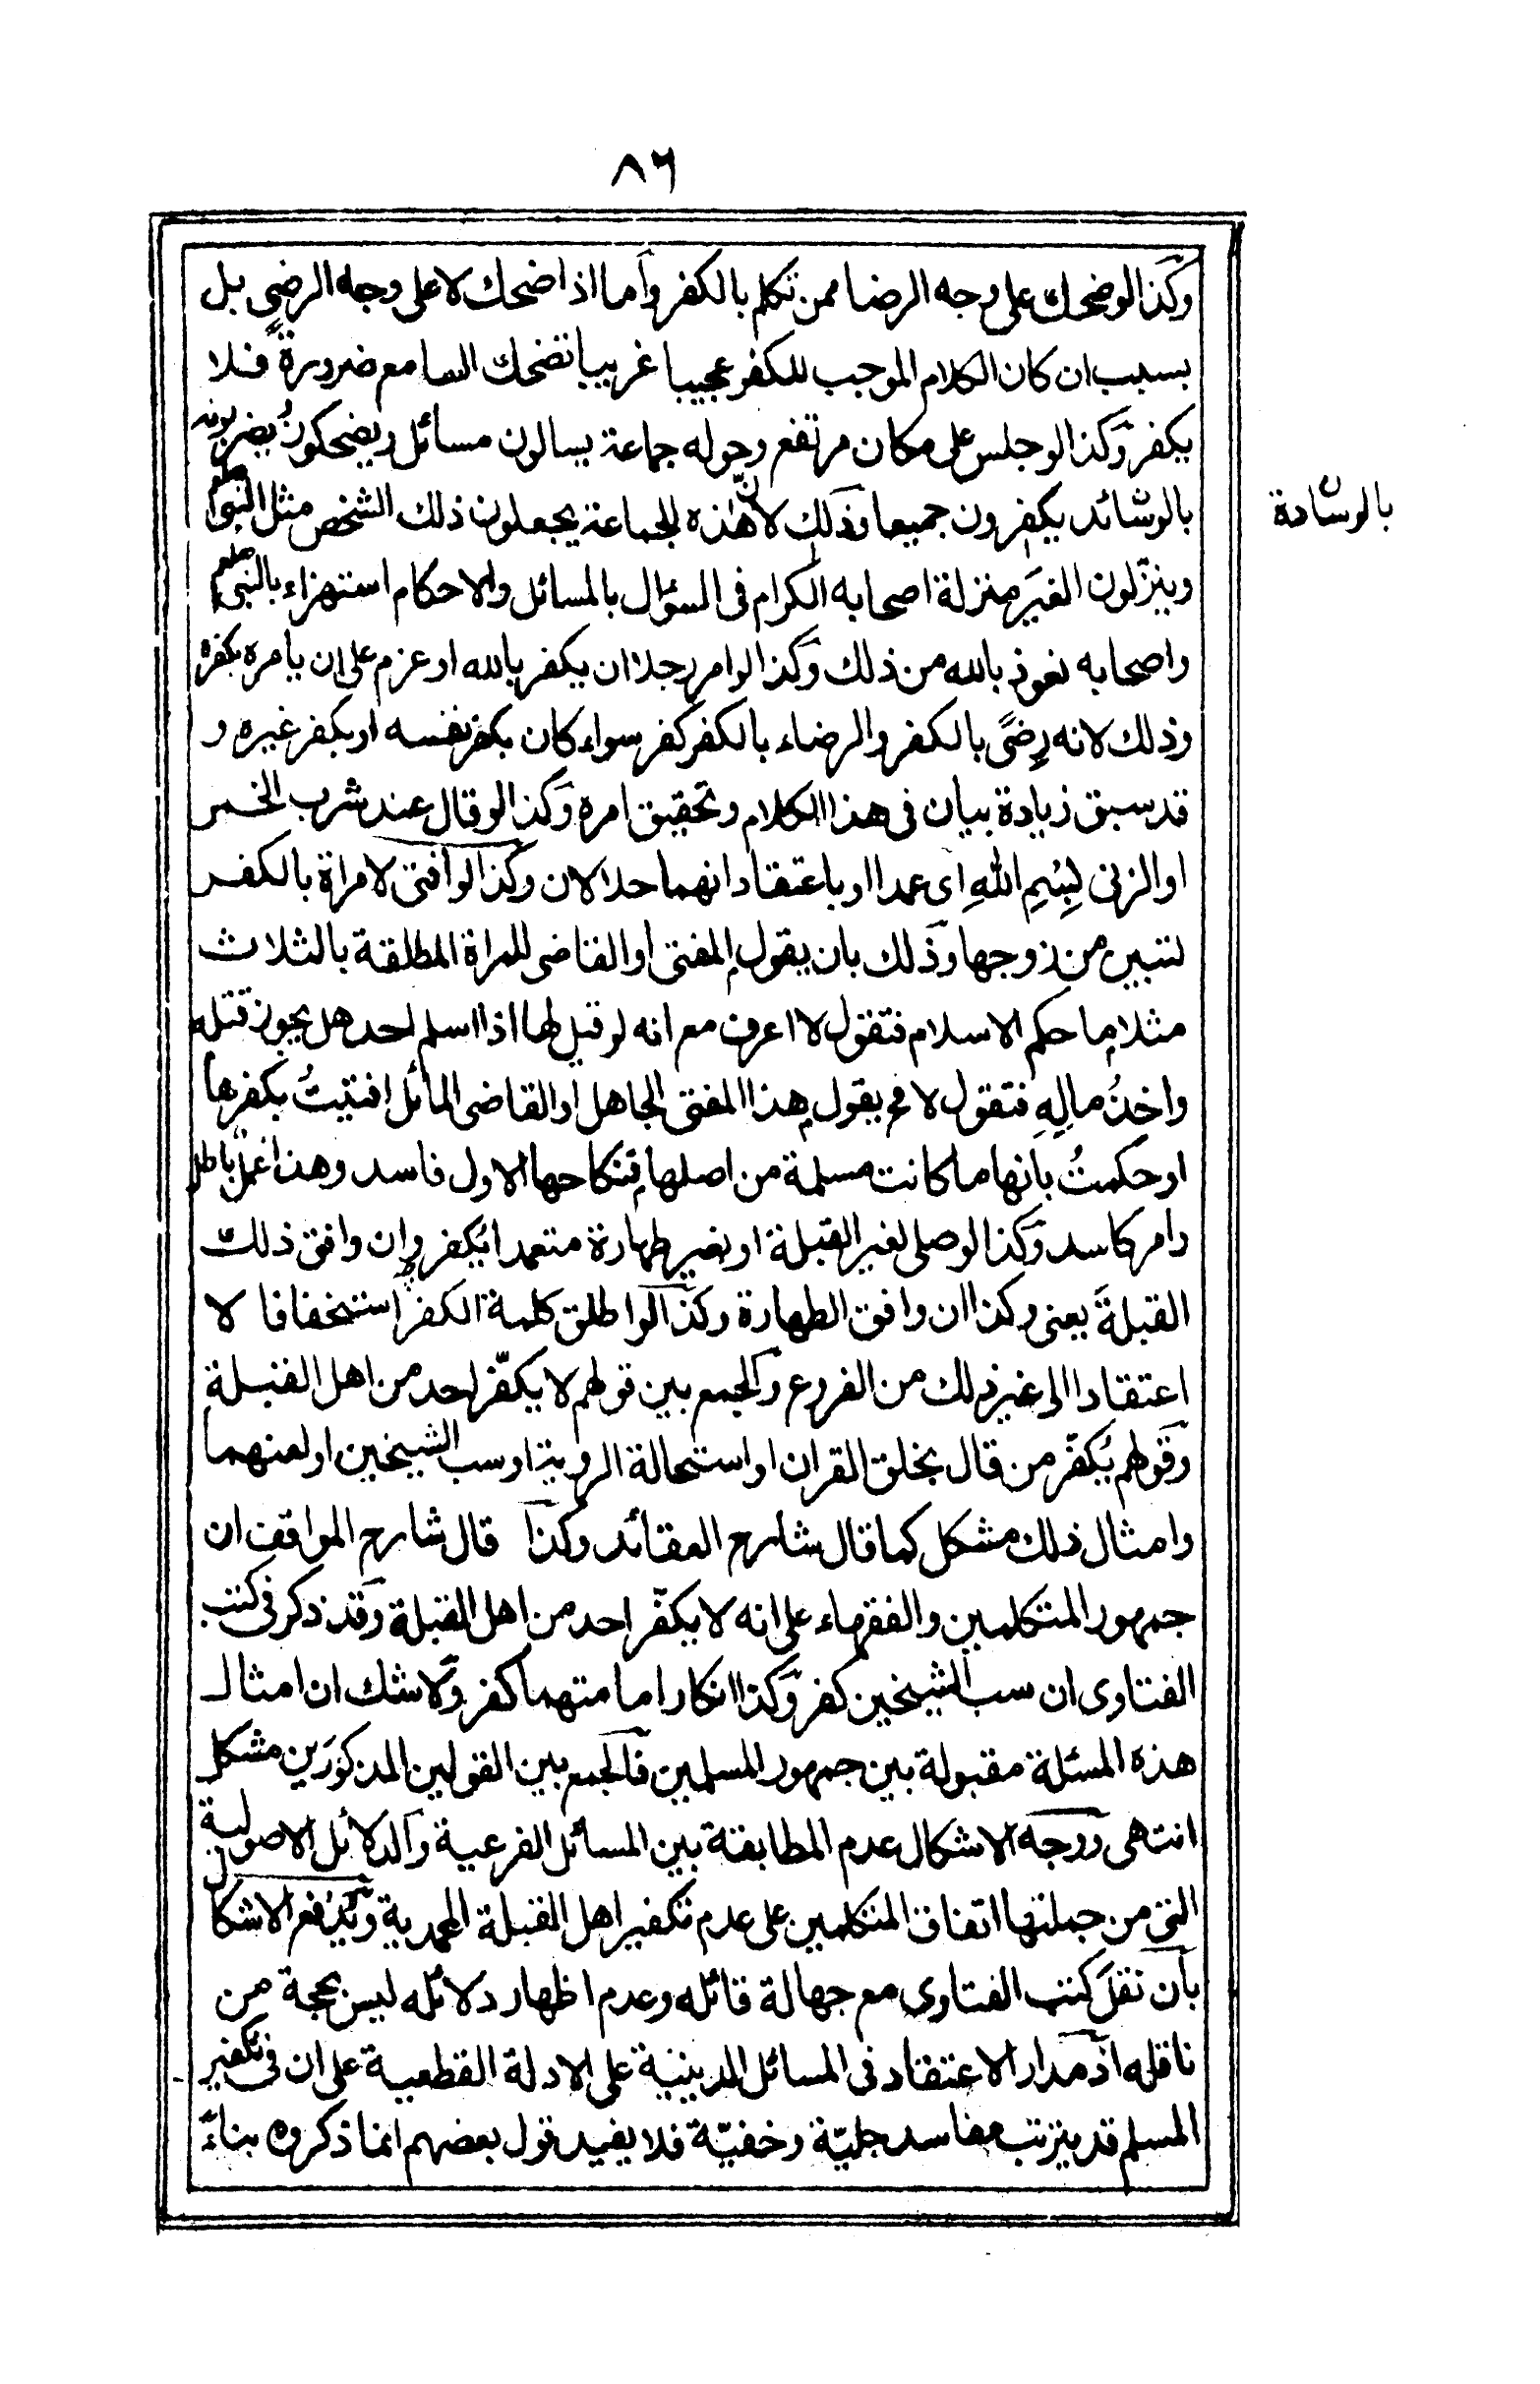 ٨٦
وكذا لو ضحك على وجه الرضا ممن تكلم بالكفر وأما اذا ضحك لا على وجه الرضى بل
بسبب ان كان الكلام الموجب للكفر عجيبا غريبا تضحك السامع ضرورة فلا
يكفر وكذا لو جلس على مكان مرتفع وحوله جماعة يسالون مسائل ويضحكون يضربونه
بالوشائد يكفرون جميعا وذلك لانّ هذه الجماعة يجعلون ذلك الشخص مثل النبى صلعم
بالوسادة
وينزّلون الغيَر منزلة اصحابه الكرام فى السؤال بالمسائل والاحكام استهزاء بالنبى صلعم
واصحابه نعوذ بالله من ذلك وكذا لو امر رجلا ان يكفر بالله او عزم على ان يامره بكفره
وذلك لانه رِضًى بالكفر والرضاء بالكفر كفر سواء كان بكفر نفسه او بكفر غيره و
قد سبق زيادة بيان فى هذا الكلام وتحقيق امره وكذا لو قال عند شرب الخمر
او الزنى بِسْمِ اللّٰهِ اى عمدا او باعتقاد انهما حلالان وكذا لو افتى لامراة بالكفر
لتبين من زوجها وذلك بان يقول المفتى او القاضى للمراة المطلقة بالثلاث
مثلا ما حكم الاسلام فتقول لا اعرف مع انه لو قيل لها اذا اسلم احد هل يجوز قتله
واخذُ مالِهِ فتقول لا فح يقول هذا المفتى الجاهل او القاضى المائل افتيتُ بكفرها
او حكمتُ بانها ما كانت مسلمة من اصلها فنكاحها الاول فاسد وهذا عمل باطل
وامر كاسد وكذا لو صلى لغير القبلة او بغير طهارة متعمدا يُكفر وان وافق ذلك
القبلةَ يعنى وكذا ان وافق الطهارة وكذا لو اطلق كلمة الكفر استخفافا لا
اعتقادا الى غير ذلك من الفروع والجمع بين قولهم لا يكفّر احد من اهل القبلة
وقولهم يُكفّر من قال بخلق القران او استحالة الروية او سب الشيخين او لعنهما
وامثال ذلك مشكل كما قال شارح العقائد وكذا قال شارح المواقف ان
جمهور المتكلمين والفقهاء على انه لا يكفّر احد من اهل القبلة وقد ذكر فى كتب
الفتاوى ان سب الشيخين كفر وكذا انكار امامتهما كفر ولا شك ان امثال
هذه المسئلة مقبولة بين جمهور المسلمين فالجمع بين القولين المذكورَين مشكل
انتهى ووجه الاشكال عدم المطابقة بين المسائل الفرعية والدلائل الاصولية
التى من جملتها اتفاق المتكلمين على عدم تكفير اهل القبلة المحمدية ويُدفع الاشكال
بان نقلَ كتب الفتاوى مع جهالة قائله وعدم اظهار دلائله ليس بحجة من
ناقله اذ مدار الاعتقاد فى المسائل الدينية على الادلة القطعية على ان فى تكفير
المسلم قد يترتب مفاسد جليّة وخفيّة فلا يفيد قول بعضهم انما ذكروه بناءً